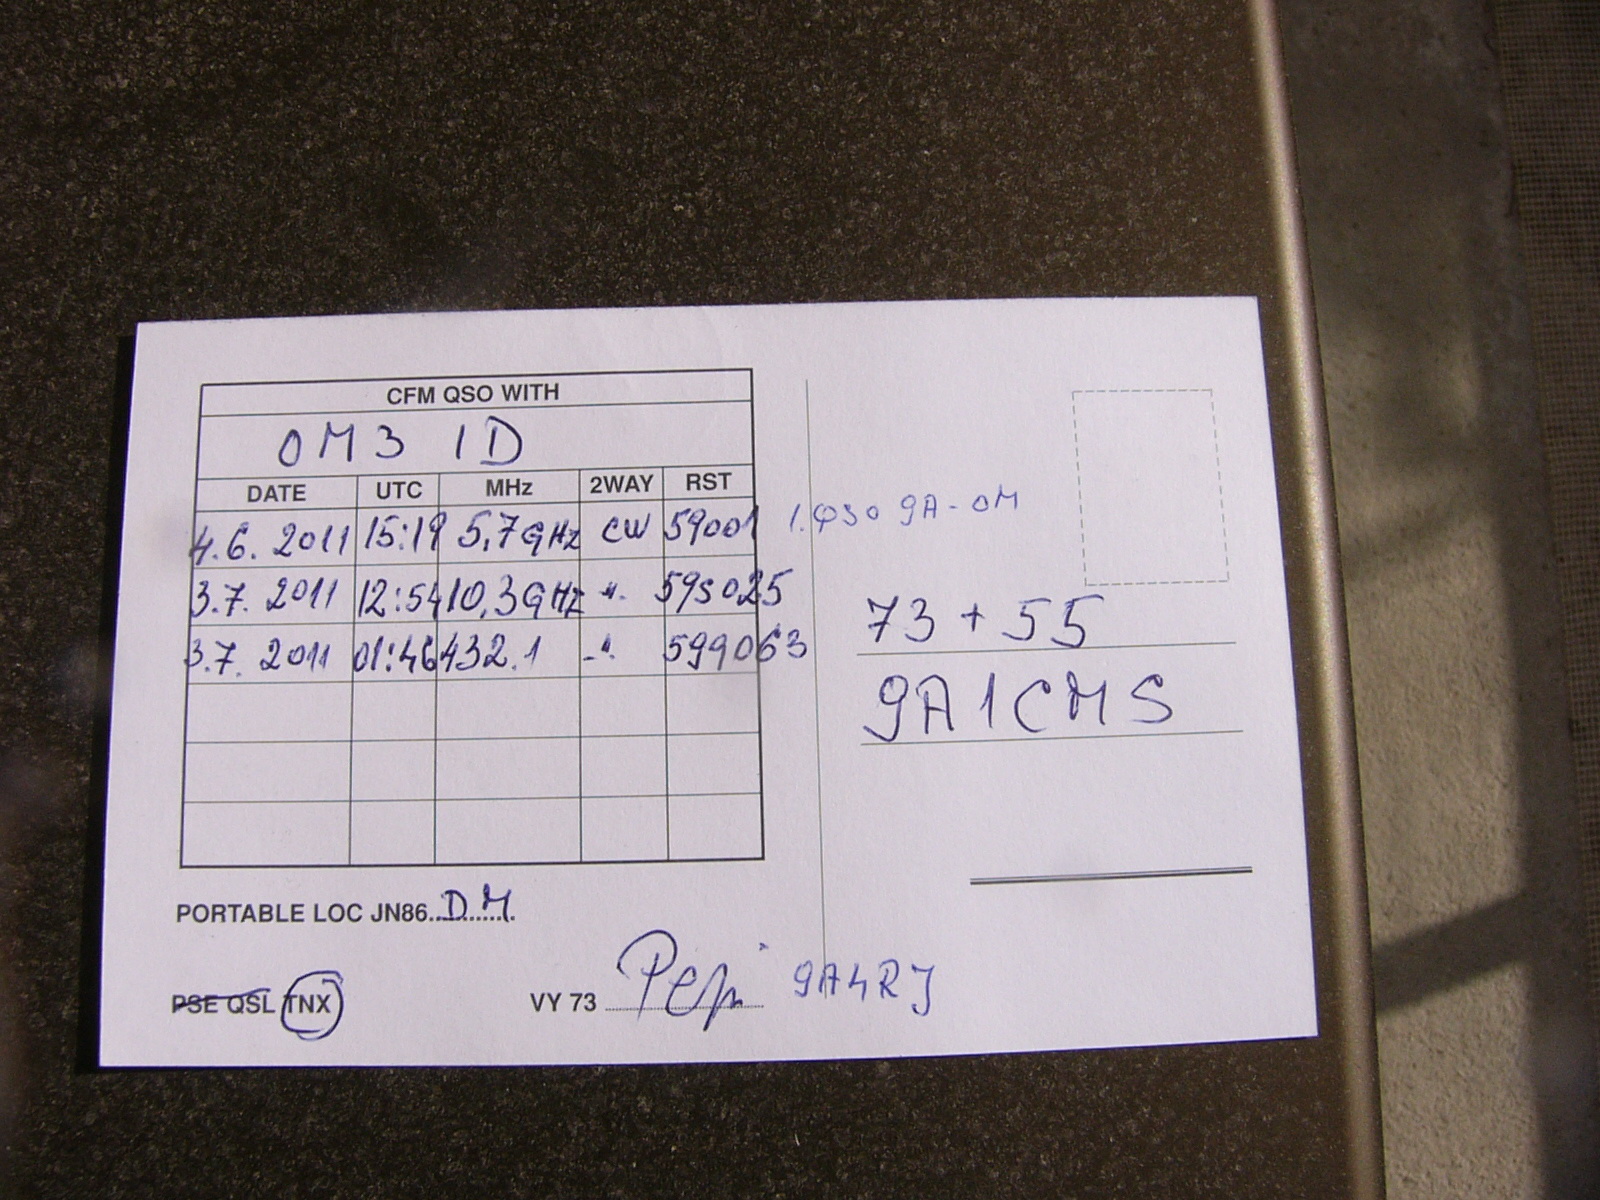 CFM QSO WITH
OM3 ID
DATE UTC MHz 2WAY RST
4.6. 2011 15:19 5,7GHz CW 59001 1. QSO 9A-OM
3.7. 2011 12:54 10,3GHz -"- 59S025
3.7. 2011 01:46 432.1 -"- 599063
73 + 55
9A1CMS
PORTABLE LOC JN86..DM..
PSE QSL TNX
VY 73 Pepi 9A4RJ